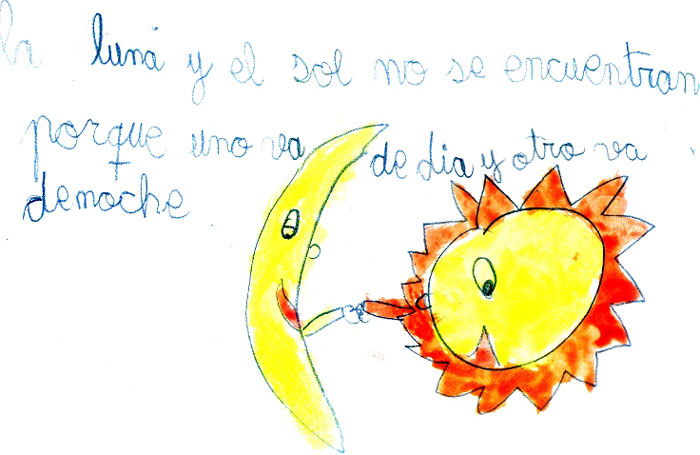 la luna y el sol no se encuentran
porque uno va de dia y otro va
demoche